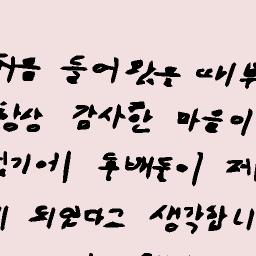 처음 들어왔을 때부
항상 감사한 마음이
있기에 후배들이 제
게 되었다고 생각합니